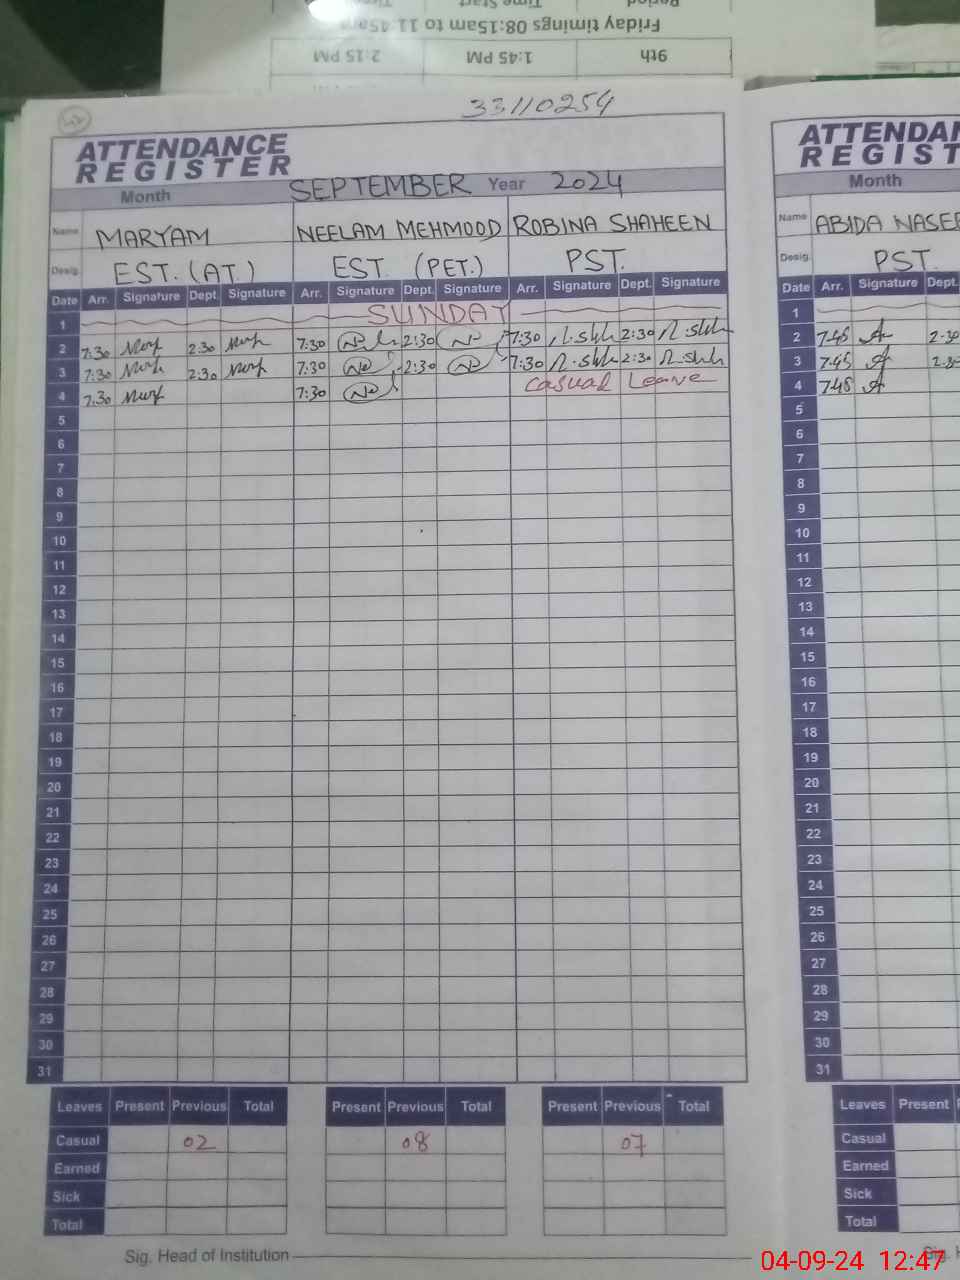 Period Time Start
Friday timings 08:15am to 11:45am
9th 1:45 PM 2:15 PM
33110254
ATTENDANCE
REGISTER
Month SEPTEMBER Year 2024
Name MARYAM NEELAM MEHMOOD ROBINA SHAHEEN
Desig. EST. (AT.) EST. (PET.) PST.
Date Arr. Signature Dept. Signature Arr. Signature Dept. Signature Arr. Signature Dept. Signature
1 SUNDAY
2 7:30 2:30 7:30 2:30 7:30 2:30
3 7:30 2:30 7:30 2:30 7:30 2:30
4 7:30 7:30 Casual Leave
5
6
7
8
9
10
11
12
13
14
15
16
17
18
19
20
21
22
23
24
25
26
27
28
29
30
31
Leaves Present Previous Total Present Previous Total Present Previous Total
Casual 02 08 07
Earned
Sick
Total
Sig. Head of Institution
ATTENDAN
REGIST
Month
Name ABIDA NASEE
Desig. PST.
Date Arr. Signature Dept.
1
2 7:45 2:30
3 7:45 2:30
4 7:45
5
6
7
8
9
10
11
12
13
14
15
16
17
18
19
20
21
22
23
24
25
26
27
28
29
30
31
Leaves Present
Casual
Earned
Sick
Total
Sig.
04-09-24 12:47